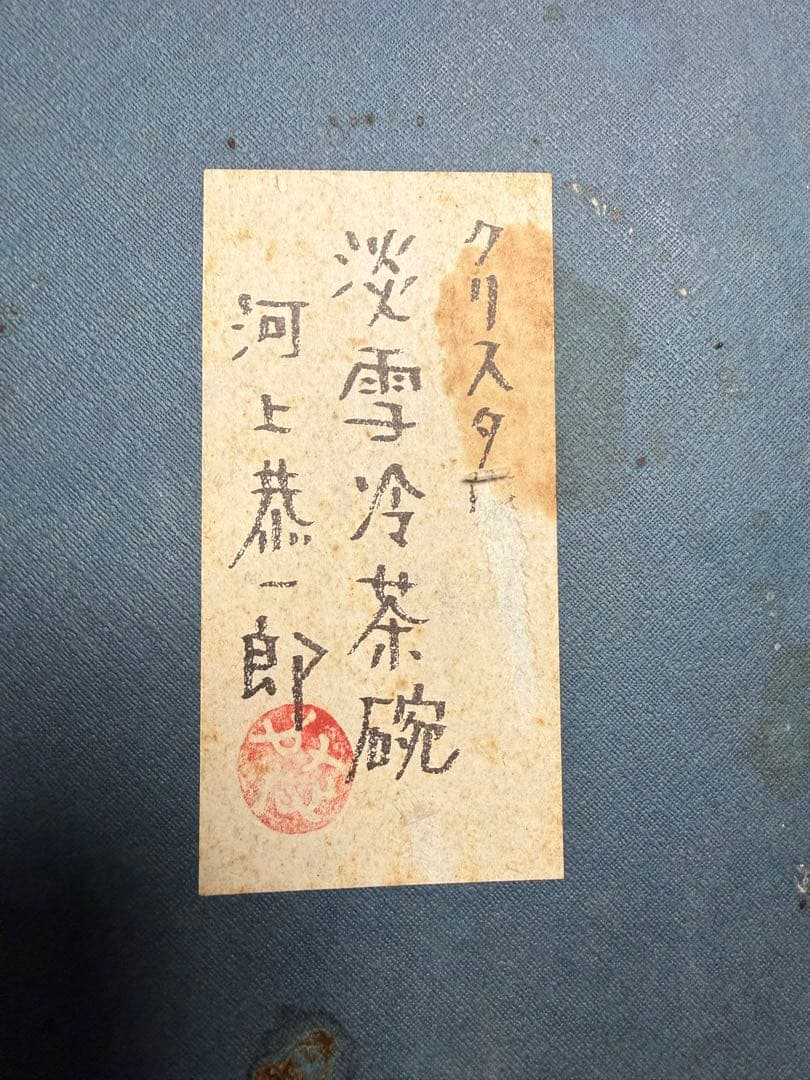 クリスタ
淡雪冷茶碗
河上恭一郎